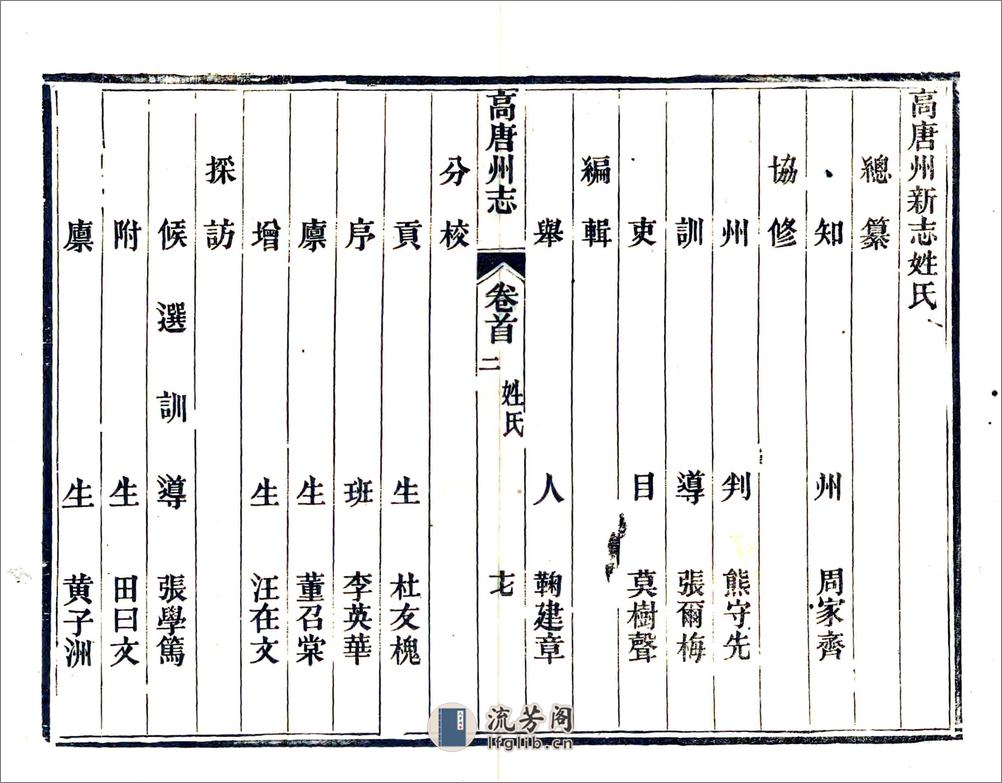 高唐州新志姓氏
總纂
知州 周家齊
協修
州判 熊守先
訓導 張爾梅
吏目 莫樹聲
編輯
舉人 鞠建章
高唐州志 卷首二 姓氏 七
分校
貢生 杜友槐
序班 李英華
廩生 董召棠
增生 汪在文
採訪
候選訓導 張學篤
附生 田曰文
廩生 黄子洲
流芳阁
lfglib.cn